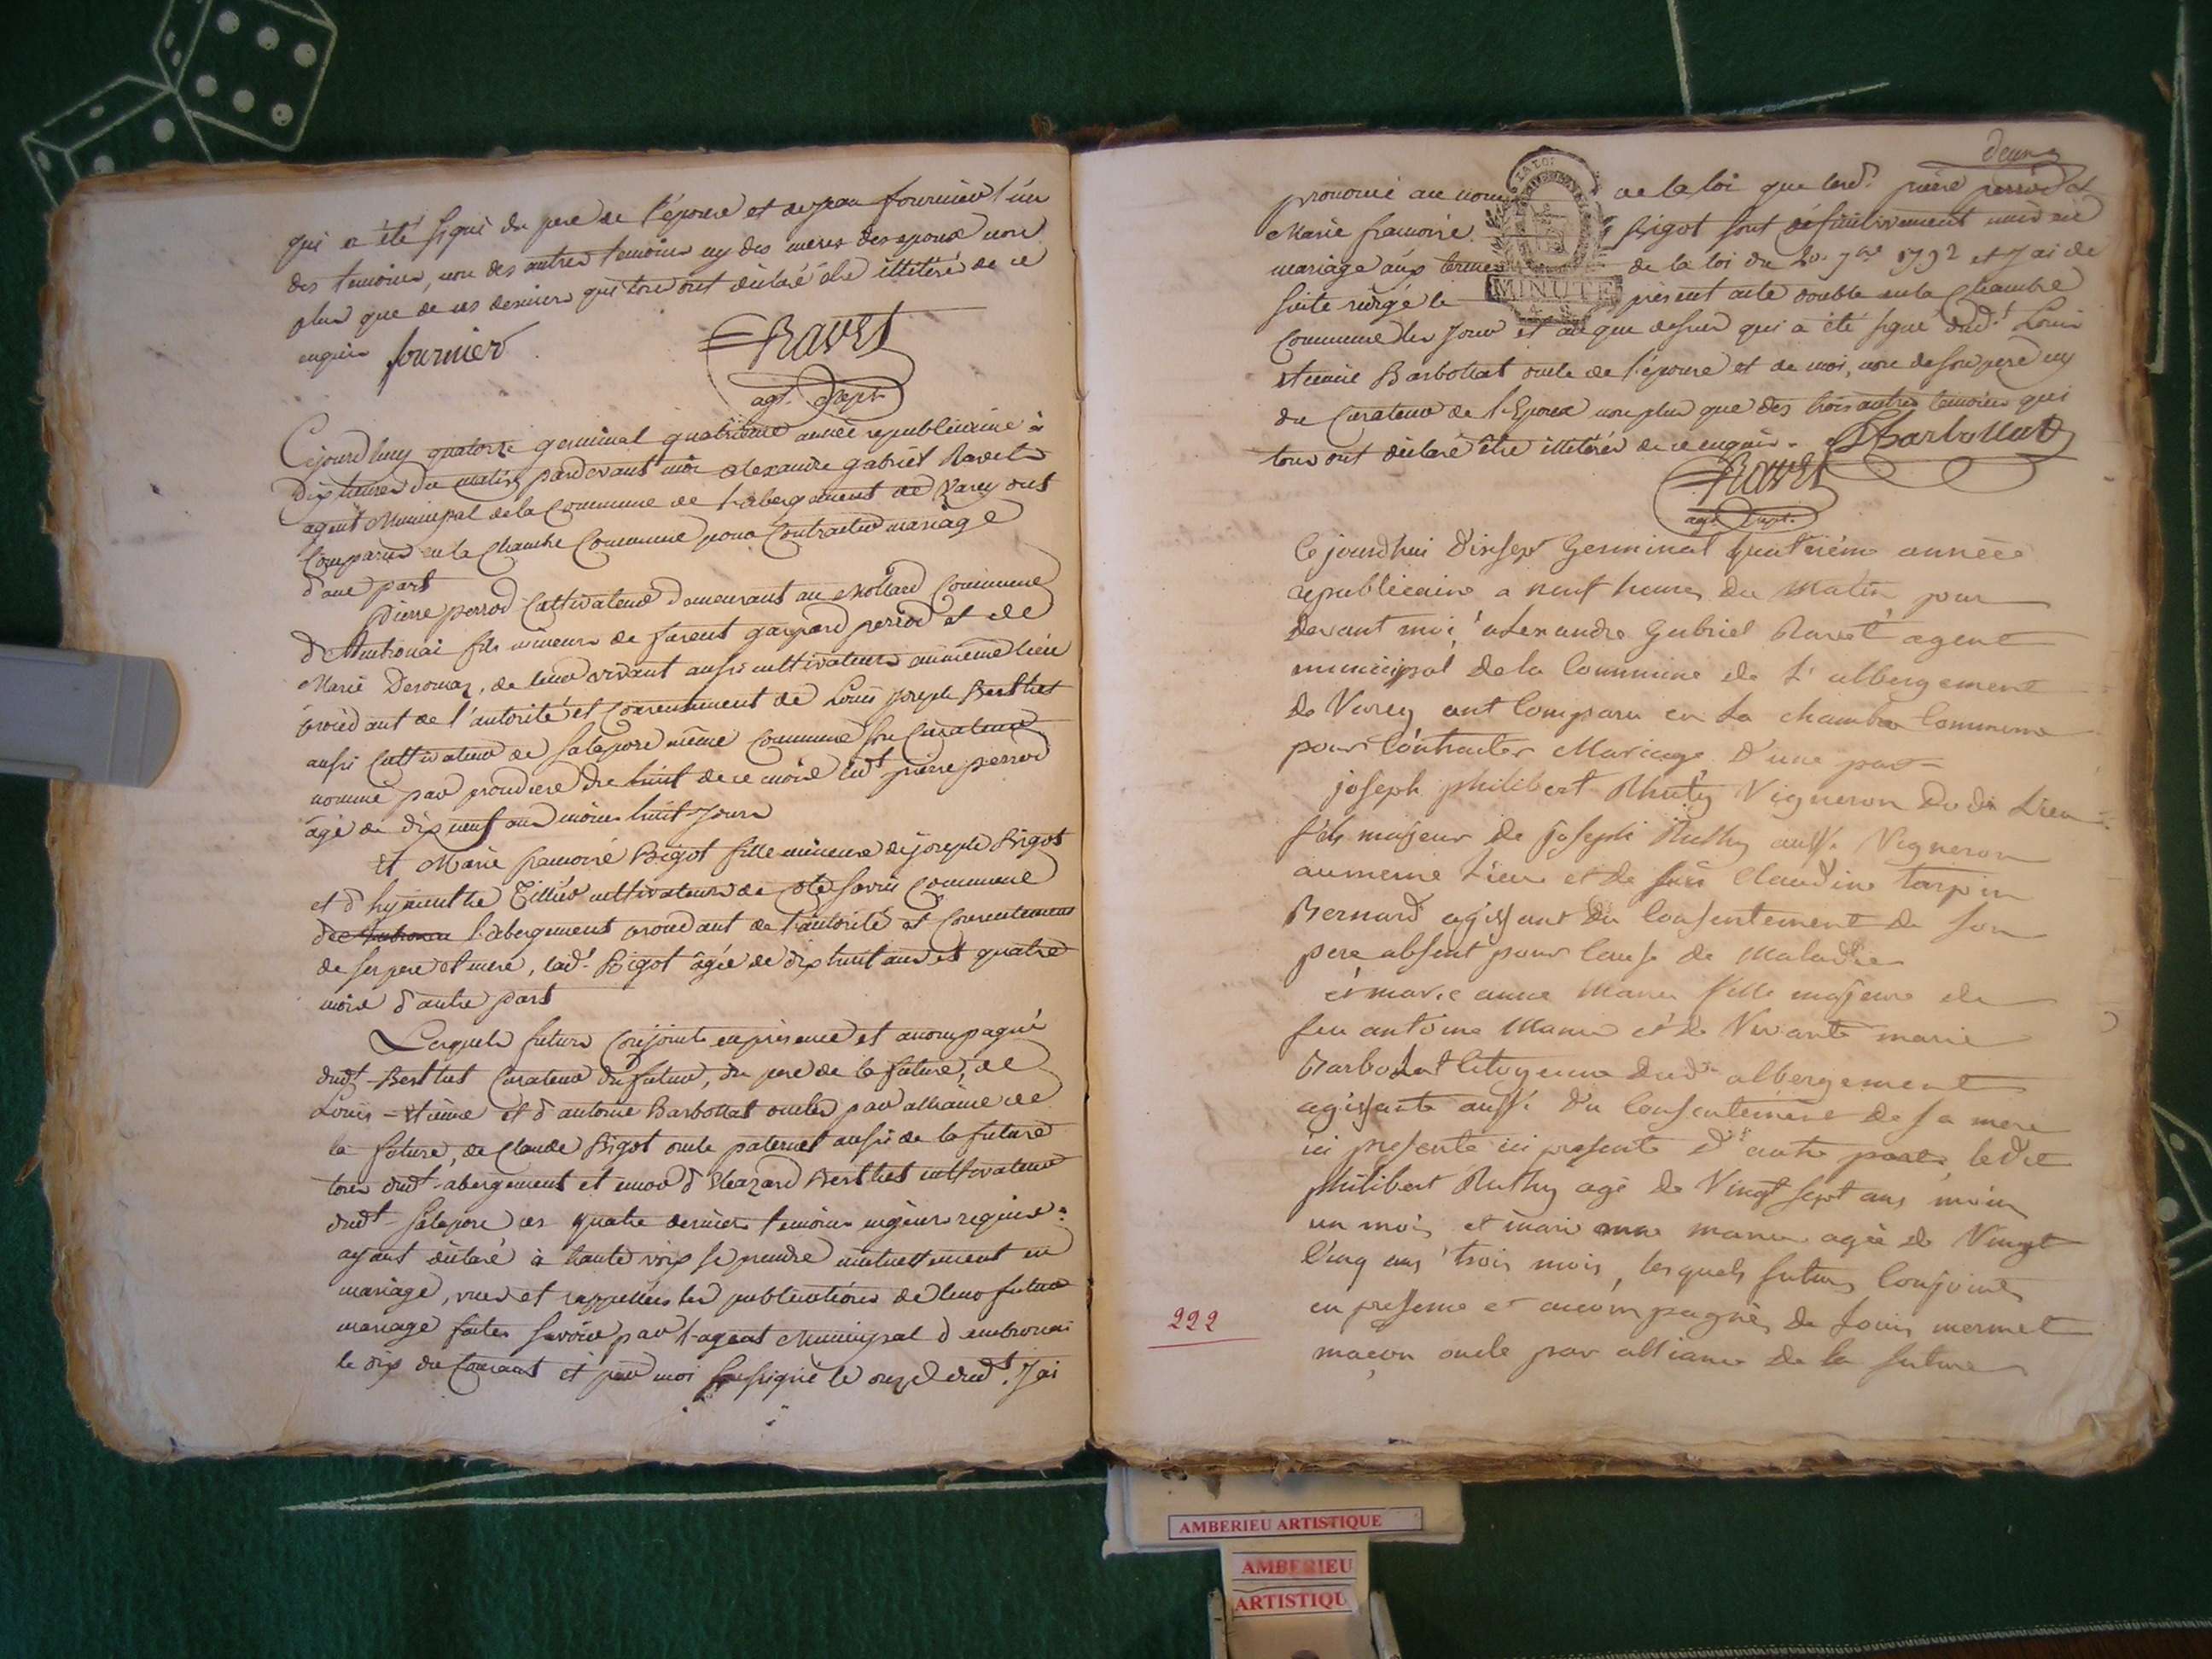 qui a été signé du pere de l'épouse et de jean fournier l'un
des temoins, non des autres temoins ny des meres des epoux non
plus que de ces derniers qui tous ont déclaré être illitéré de ce
enquis fournier
Ravet
agt.
Cejourd'huy quatorze germinal quatrieme année republicaine à
Dix heures du matin pardevant moi alexandre gabriel Ravet
agent Municipal de la Commune de l'abergement de Varey ont
Comparus en la Chambre Commune pour Contracter mariage
d'une part
Pierre perrod Cultivateur demeurant au Mollard Commune
d'Ambronai fils mineur de garpard perrod et de
Marie, de leur vivant aussi cultivateurs au même lieu
procédant de l'autorité et Consentement de Louis joseph Berthet
aussi Cultivateur de Salapore même Commune son Curateur
nommé par du huit de ce mois led.t pierre perrod
âgé de dix neuf ans moins huit jours
et Marie francoise Bigot fille mineure de joseph Bigot
et d'hyacinthe Tillier cultivateurs de Commune
de l'abergement procédant de l'autorité et Consentement
de ses pere et mere, lad.e Bigot âgée de dix huit ans et quatre
mois d'autre part
Lesquels futurs Conjoints en présence et accompagné
dud.t Berthet Curateur du futur, du pere de la future, de
Louis-étienne et d'antoine Barbollat oncles par alliance de
la future, de Claude Bigot oncle paternel aussi de la future
tous dud.t abergement et encor d'Eleazard Berthet cultivateur
dud.t Salapore ces quatre derniers temoins majeurs requis
ayant déclaré à haute voix se prendre mutuellement en
mariage, vues et rappellées les publications de leur futur
mariage faites savoir par l'agent Municipal d'embronai
le dix du Courant et par moi soussigné le onze dud.t. J'ai
deux
prononcé au nom de la loi que lesd.s pierre perrod et
Marie francoise Bigot sont définitivement unis en
mariage aux termes de la loi du 20 7bre 1792 et J'ai de
suite rédigé le présent acte double en la Chambre
MINUTE
Commune les jour et an que dessus qui a été signé dud.t Louis
etienne Barbollat oncle de l'épouse et de moi, non de son pere ny
du Curateur de l'Epoux non plus que des trois autres temoins qui
tous ont déclaré être illitéré de ce enquis. Barbollat
Ravet
agt.
Ce jourdhui dixsept Germinal quatrième année
republicaine a neuf heures du Matin par
devant moi alexandre Gabriel Ravet agent
municipal de la Commune de L'albergement
de Varey ont Comparu en la chambre Commune
pour Contracter Mariage d'une part
joseph philibert Ruthy Vigneron dudit Lieu
fils majeur de Joseph Ruthy aussi Vigneron
aumeme Lieu et de Claudine tarpin
Bernard agissant du Consentement de son
pere absent pour Cause de Maladie
et marie anne fille majeure de
feu antoine et de Vivante marie
Barbolat Citoyenne dud.t albergement
agissante aussi du Consentement de sa mere
ici presente ici presente d'autre part, ledit
philibert Ruthy agé de Vingt sept ans moins
un mois et marie anne agée de Vingt
Cinq ans trois mois, lesquels futurs Conjoints
en presence et accompagnés de Louis mermet
maçon oncle par alliance de la future
222
AMBERIEU ARTISTIQUE
AMBERIEU
ARTISTIQU